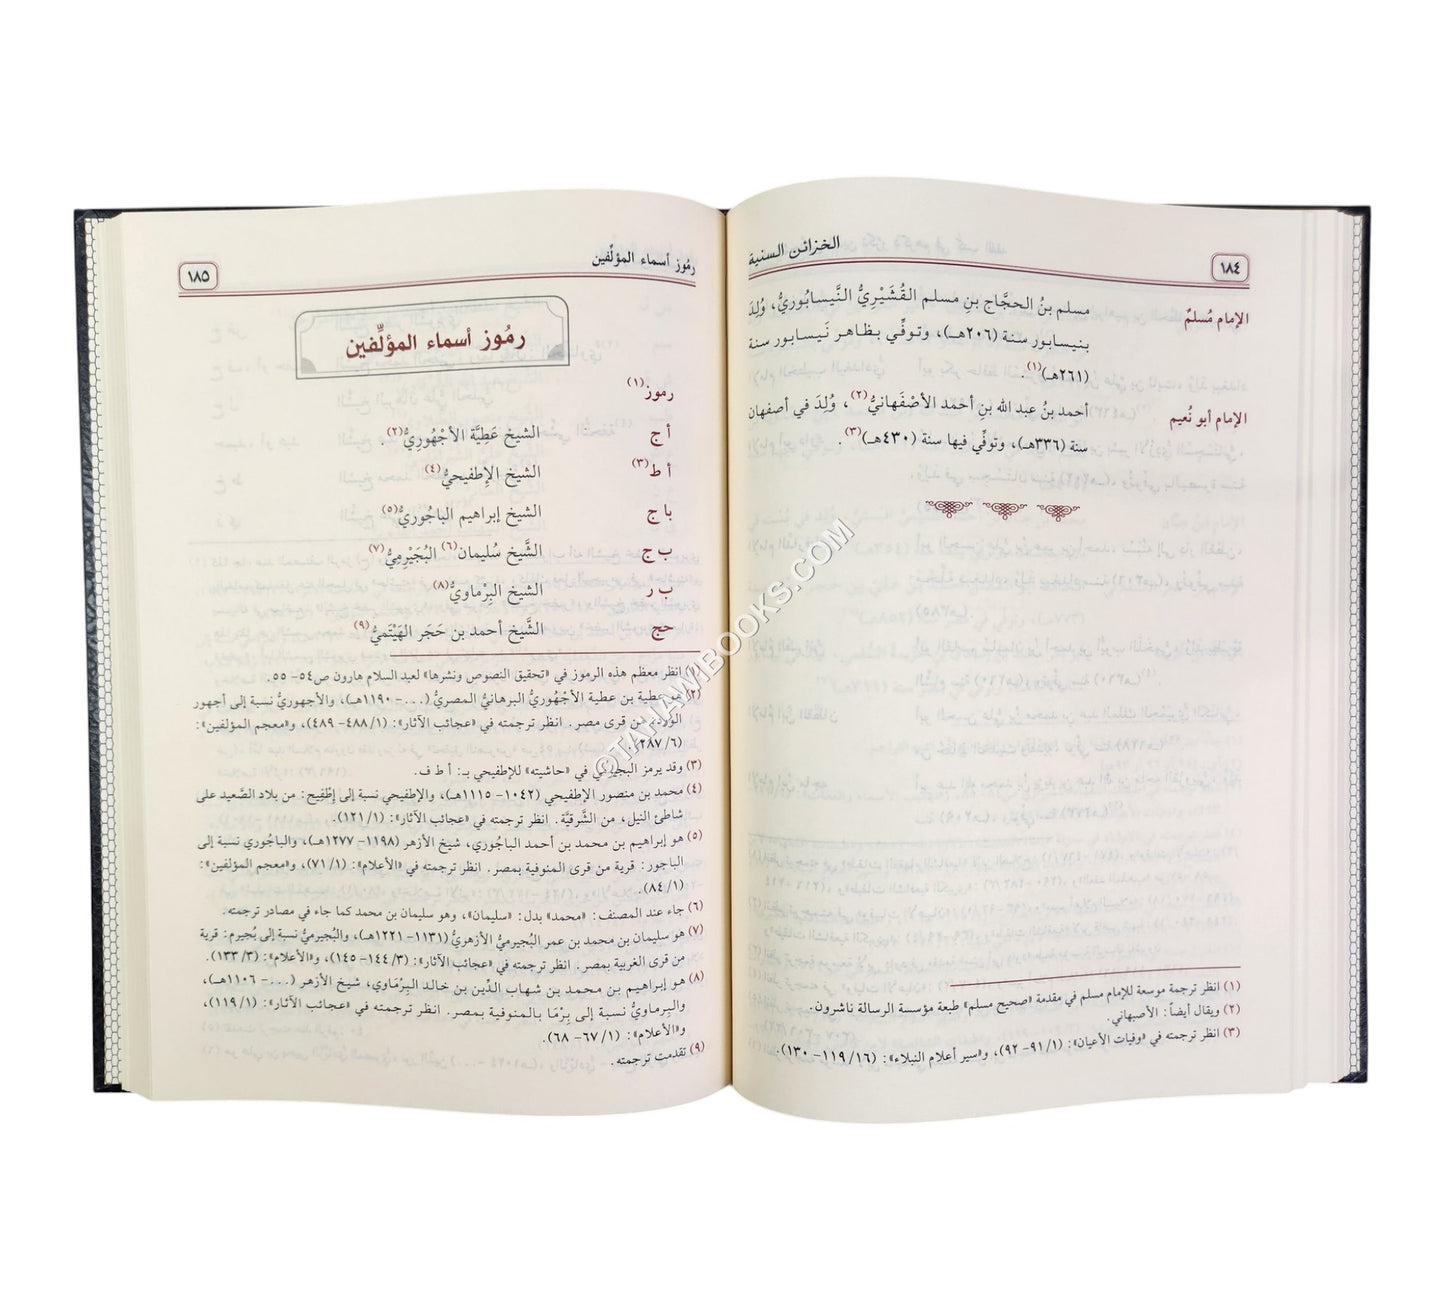 ١٨٤
الخزائن السنية
الإمام مُسلمٌ
مسلم بنُ الحجَّاج بنِ مسلم القُشَيْرِيُّ النَّيسابُوريُّ، وُلِدَ
بنيسابور سنة (٢٠٦هـ)، وتوفِّي بظاهر نَيسابور سنة
(٢٦١هـ)(١).
الإمام أبو نُعيم
أحمد بنُ عبد الله بنِ أحمد الأصْفَهانيُّ(٢)، وُلِدَ في أصفهان
سنة (٣٣٦هـ)، وتوفِّي فيها سنة (٤٣٠هـ)(٣).
(١) انظر ترجمة موسعة للإمام مسلم في مقدمة «صحيح مسلم» طبعة مؤسسة الرسالة ناشرون.
(٢) ويقال أيضاً: الأصبهاني.
(٣) انظر ترجمته في «وفيات الأعيان»: (١/ ٩١- ٩٢)، و«سير أعلام النبلاء»: (١٦/ ١١٩- ١٣٠).
رمُوز أسماء المؤلِّفين
١٨٥
رمُوز أسماء المؤلِّفين
رموز(١)
أ ج الشيخ عَطِيَّة الأجْهُورِيُّ(٢).
أ ط(٣) الشيخ الإطفيحيُّ(٤)
با ج الشيخ إبراهيم الباجُوريُّ(٥)
ب ج الشَّيخ سُليمان(٦) البُجَيْرِميُّ(٧)
ب ر الشيخ البِرْماويُّ(٨)
حج الشَّيخ أحمد بن حَجَر الهَيْتَميُّ(٩)
(١) انظر معظم هذه الرموز في «تحقيق النصوص ونشرها» لعبد السلام هارون ص٥٤- ٥٥.
(٢) هو عطية بن عطية الأجْهُوريُّ البرهانيُّ المصريُّ (...- ١١٩٠هـ)، والأجهوريُّ نسبة إلى أجهور
الورد من قرى مصر. انظر ترجمته في «عجائب الآثار»: (١/ ٤٨٨- ٤٨٩)، و«معجم المؤلفين»:
(٦/ ٢٨٧).
(٣) وقد يرمز البجيرمي في «حاشيته» للإطفيحي بـ: أ ط ف.
(٤) محمد بن منصور الإطفيحي (١٠٤٢- ١١١٥هـ)، والإطفيحي نسبة إلى إطْفِيح: من بلاد الصَّعيد على
شاطئ النيل، من الشَّرقيَّة. انظر ترجمته في «عجائب الآثار»: (١/ ١٢١).
(٥) هو إبراهيم بن محمد بن أحمد الباجُوري، شيخ الأزهر (١١٩٨- ١٢٧٧هـ)، والباجُوري نسبة إلى
الباجور: قرية من قرى المنوفية بمصر. انظر ترجمته في «الأعلام»: (١/ ٧١)، و«معجم المؤلفين»:
(١/ ٨٤).
(٦) جاء عند المصنف: «محمد» بدل: «سليمان»، وهو سليمان بن محمد كما جاء في مصادر ترجمته.
(٧) هو سليمان بن محمد بن عمر البُجيرميُّ الأزهريُّ (١١٣١- ١٢٢١هـ)، والبُجيرميُّ نسبة إلى بُجيرم: قرية
من قرى الغربية بمصر. انظر ترجمته في «عجائب الآثار»: (٣/ ١٤٤- ١٤٥)، و«الأعلام»: (٣/ ١٣٣).
(٨) هو إبراهيم بن محمد بن شهاب الدِّين بن خالد البِرْمَاوي، شيخ الأزهر (...- ١١٠٦هـ)،
والبِرماويُّ نسبة إلى بِرْمَا بالمنوفية بمصر. انظر ترجمته في «عجائب الآثار»: (١/ ١١٩)،
و«الأعلام»: (١/ ٦٧- ٦٨).
(٩) تقدمت ترجمته.
©TAHAWIBOOKS.COM